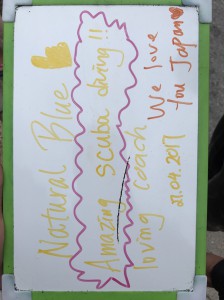 Natural Blue
Amazing scuba diving!!
loving coach
We love
You JAPAN
21.04.2017